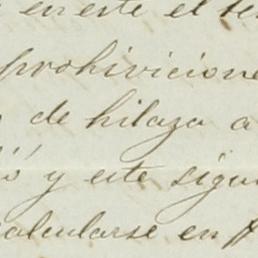 en este el te
prohivicione
de hilaza a
ió y este sigu
calcularse en p